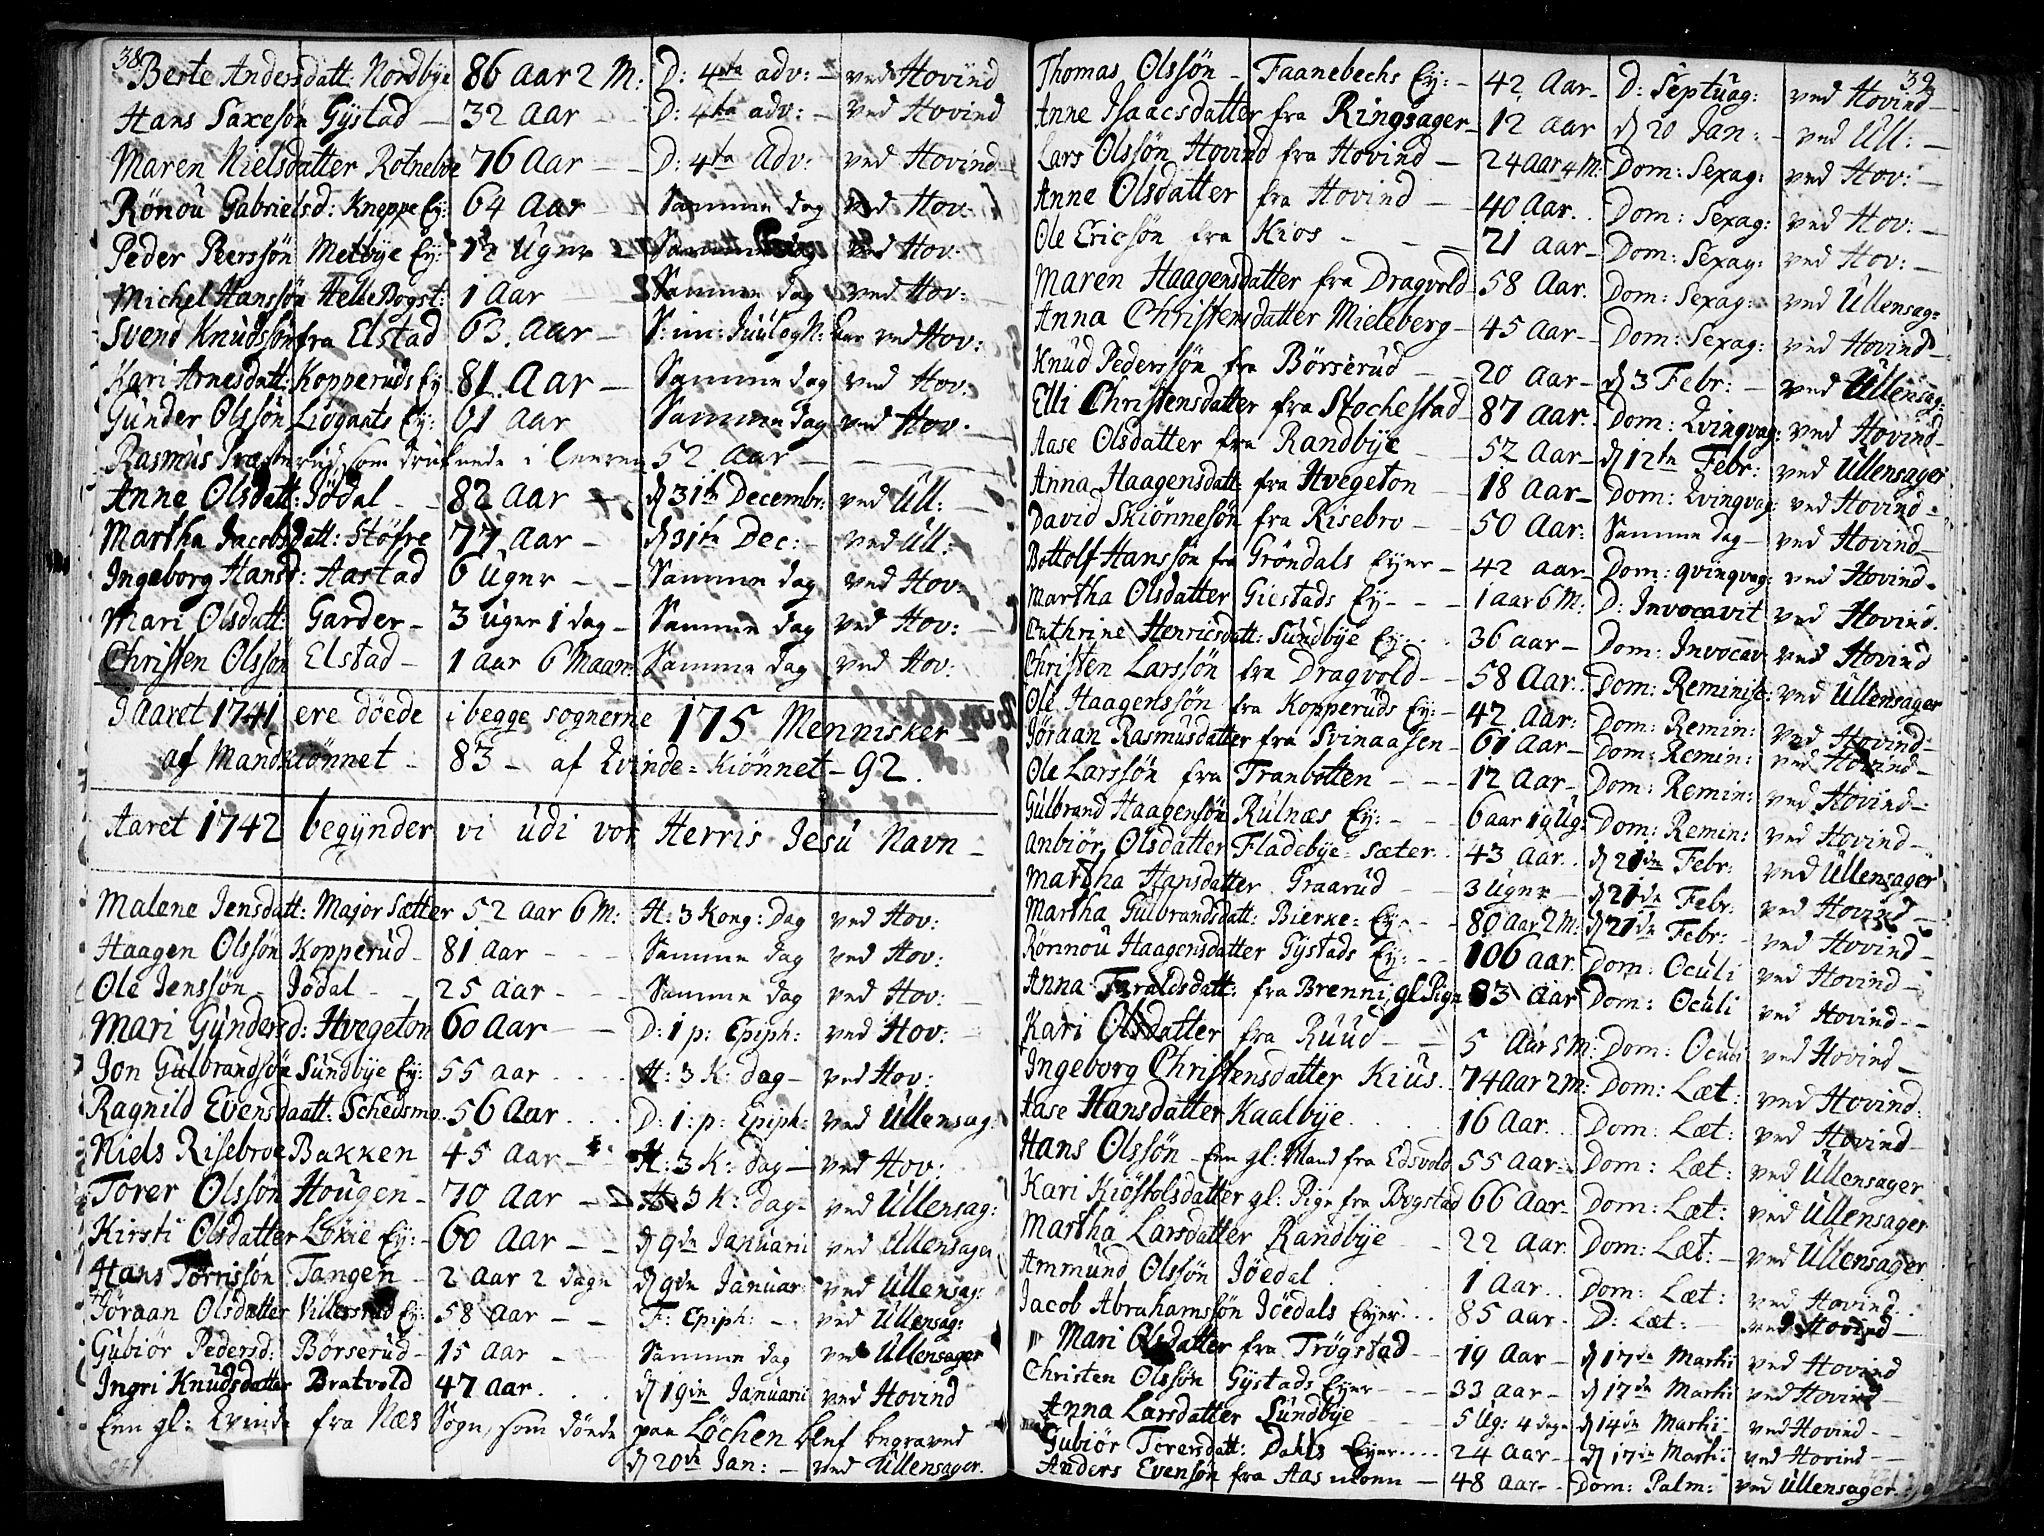 38
Berte Andersdatt: Nordbÿe 86 Aar 2 M: D: 4ta adv: – ved Hovind
Hans Saxesøn Gÿstad – 32 Aar – D: 4ta adv: – ved Hovind
Maren Nielsdatter Rotneboe 76 Aar – D: 4ta Adv: ved Hovind –
Rönou Gabrielsd: Kneppe Eÿ: 64 Aar – Samme dag ved Hov:
Peder Peerssön Melbÿe Eÿ: 12 Uger – Samme dag ved Hov:
Michel Hanssön Helle Bogst: 1 Aar – Samme dag ved Hov:
Svend Knudsön fra Elstad 63. Aar – S: im: Juul og N: Aar ved Hov:
Kari Arnesdatt: Kopperuds Eÿ 81. Aar – Samme dag ved Hov:
Gunder Olssön Liögaats Eÿ: 61 Aar Samme dag ved Hov. –
Rasmus Træterud, som druknede i Leeren 52 Aar –
Anne Olsdatt: Jödal – 82 Aar – d 31th Decembr: ved Ull: –
Martha Jacobsdatt: Störfre 77 Aar – d 31th Dec: – ved Ull:
Ingeborg Hansd: Aastad 6 Uger – Samme dag ved Hov:
Mari Olsdatt: Garder – 3 Uger 1 dag – Samme dag ved Hov: –
Christen Olssön Elstad – 1 Aar 6 Maan: Samme dag ved Hov:
I Aaret 1741 ere döede i begge sognerne 175 Mennisker –
af Mandkiönnet – 83 – af Qvinde=kiönnet – 92.
Aaret 1742 begÿnder vi udi vor Herris Jesu Navn –
Malene Jensdatt: Major Sætter 52 Aar 6 M: H: 3 Kong: Dag ved Hov:
Haagen Olssön Kopperud – 81 Aar – Samme dag ved Hov:
Ole Jenssön – Jödal – 25 Aar – Samme dag ved Hov: –
Mari Gÿndersd: Hvegeton 60 Aar – D: 1 p: Epiph: ved Hov: –
Jon Gulbrandsön Sundbÿe Eÿ: 55 Aar . . . H: 3 K: dag – ved Hov:
Ragnild Evensdaatt: Schedsmo. 56 Aar . . . D: 1: p: Epiph: ved Ullensag:
Niels Risebroe Bakken 45 Aar – H: 3 K: dag – ved Hov:
Torer Olssön Hougen – 70 Aar – H: 3 K: dag – ved Ullensag:
Kirsti Olsdatter Lökie Eÿ: – 60 Aar – d 9de Januarii ved Ullensager
Hans Torrissön Tangen 2 Aar 2 dage d 9de Januar: ved Ullensag:
Jöraan Olsdatter Villersrud Eÿ: 58 Aar – F: Epiph: – ved Ullensag:
Gubiör Pedersd: Börserud – 15 Aar – Samme dag ved Ullensager
Ingri Knudsdatter Bratvold 47 Aar . . . d 19de Januarii ved Hovind
Een gl: Qvinde fra Næs Sogn, som döede paa Löchen blef begraved
d 20de Jan: – ved Ullensager.
39
Thomas Olssön – Faanebechs Eÿ: – 42 Aar – D: Septuag: ved Hovind –
Anne Isaacsdatter fra Ringsager – 12 Aar d 20 Jan: – ved Ull: –
Lars Olssön Hovind fra Hovind – 24 Aar 4 M: Dom: Sexag: ved Hov: –
Anne Olsdatter fra Hovind – 40 Aar. . Dom: Sexag: ved Hov: –
Ole Ericsön fra Kios – – – 21 Aar – Dom: Sexag: ved Hov: –
Maren Haagensdatter fra Dragvold 58 Aar. Dom: Sexag: ved Ullensag:
Anna Christensdatter Mieleberg – 45 Aar – Dom: Sexag: ved Hovind –
Knud Pederssön fra Börserud – 20 Aar – d 3 Febr: – ved Ullensag:
Elli Christensdatter fra Stochestad – 87 Aar. Dom: Qvinqvag: ved Hovind –
Aase Olsdatter fra Randbÿe – 52 Aar – d 12te Febr: ved Ullensager
Anna Haagensdatt: fra Hvegeton – 18 Aar – Dom: Qvinqvag: ved Hovind –
David Skiönnesön fra Risebro – 50 Aar: Samme dag – ved Hovind –
Bottolf Hanssön fra Gröndals Eÿer – 42 Aar – Dom: qvinqvag: ved Hovind –
Martha Olsdatter Giestads Eÿ – – – 1 Aar 6 M: D: Invocavit ved Hovind.
Cathrine Henricsdatt: Sundbÿe Eÿ: . . 36 Aar – Dom: Invocav: ved Hovind
Christen Larssön fra Dragvold – – 58 Aar. . Dom: Reminisc: ved Ullensager
Ole Haagenssön fra Kopperuds Eÿ: – 42 Aar: Dom: Remin: ved Hovind –
Jöraan Rasmusdatter fra Svinaasen – 61 Aar – Dom: Remin: ved Hovind –
Ole Larssön fra Tranbotten – – – 12 Aar – Dom: Remin: ved Hovind –
Gulbrand Haagensön Rulnæs Eÿ: – – 6 Aar 19 Ug: Dom: Remin: ved Hovind –
Anbiör Olsdatter Fladebÿe=sæter . . 43 Aar. . d 21de Febr: ved Ullensager
Martha Hansdatter Graarud – – 3 Uger – d 21de Febr: ved Hovind –
Martha Gulbrandsdatt: Bierke=Eÿ: – – 80 Aar 2 M: d 21de Febr: – ved Hovind –
Rönnou Haagensdatter Gÿstads Eÿ: – – 106 Aar. Dom: Oculi ved Hovind –
Anna Taraldsdatt: fra Brenni, gl. Pige 83 Aar Dom: Oculi ved Hovind – –
Kari Olsdatter fra Ruud – – 5 Aar 5 M: Dom: Oculi ved Hovind –
Ingeborg Christensdatter Kius . . 74 Aar 2 M: Dom: Læt: ved Hovind:
Aase Hansdatter Kaalbÿe . . . . 16 Aar. . Dom: Læt: ved Hovind –
Hans Olssön – Een gl: Mand fra Edsvold 55 Aar – Dom: Læt: ved Ullensager.
Kari Kiöstolsdatter gl: Pige fra Bogstad 66 Aar – Dom: Læt: ved Ullensager
Martha Larsdatter Randbÿe – 22 Aar. Dom: Læt: – ved Ullensager.
Ammund Olssön Jöedal . . . 1 Aar. . Dom: Læt: ved Hovind. .
Jacob Abrahamssön Jöedals Eÿer: . . 85 Aar – D: Læt: – ved Hovind –
Mari Olsdatter fra Trögstad – – 19 Aar – d 17de Martii ved Hovind
Christen Olssön Gÿstads Eÿer – – – 33 Aar – d 17de Martii ved Hovind –
Anna Larsdatter Sundbÿe – – – 5 Ug: 4 dage d 14de Martii ved Hovind – –
Gubiör Torersdatt: Dahls Eÿer . . . . 24 Aar – d 17de Martii ved Hovind – –
Anders Evensön fra Aasmoen – 48 Aar – Dom: Palm: ved Ullensager.